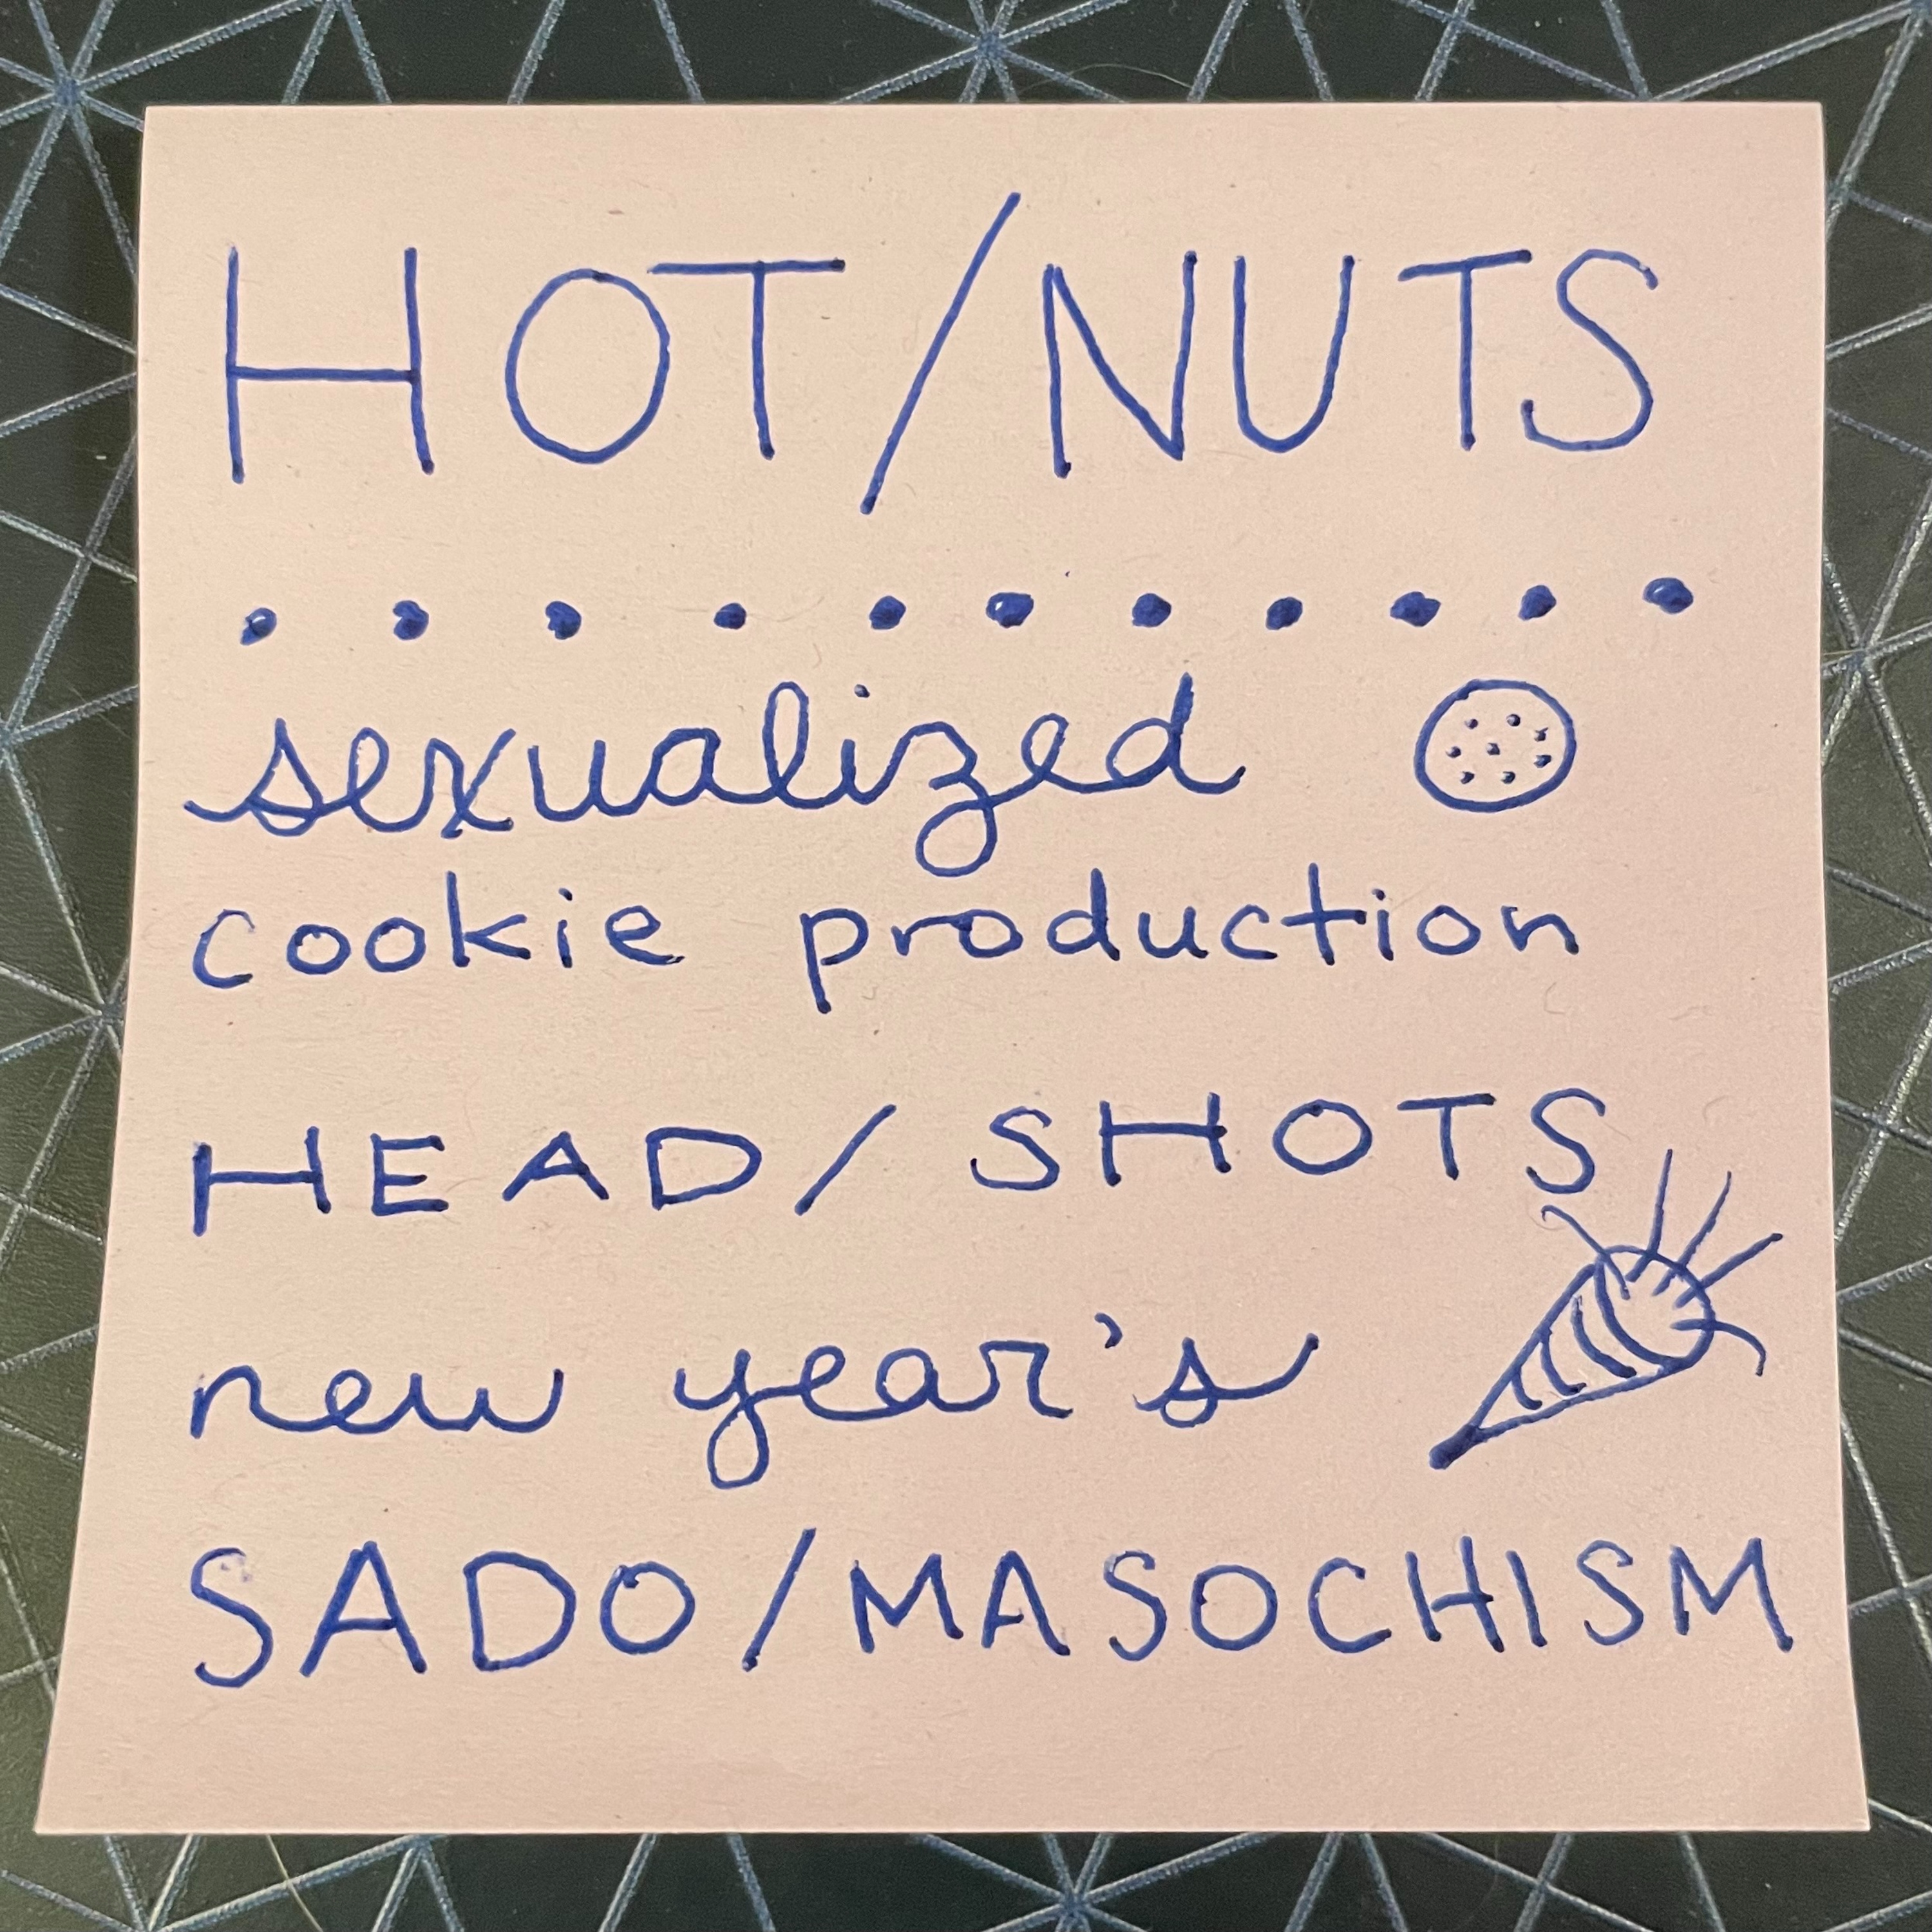 HOT/NUTS
sexualized
cookie production
HEAD/SHOTS
new year's
SADO/MASOCHISM